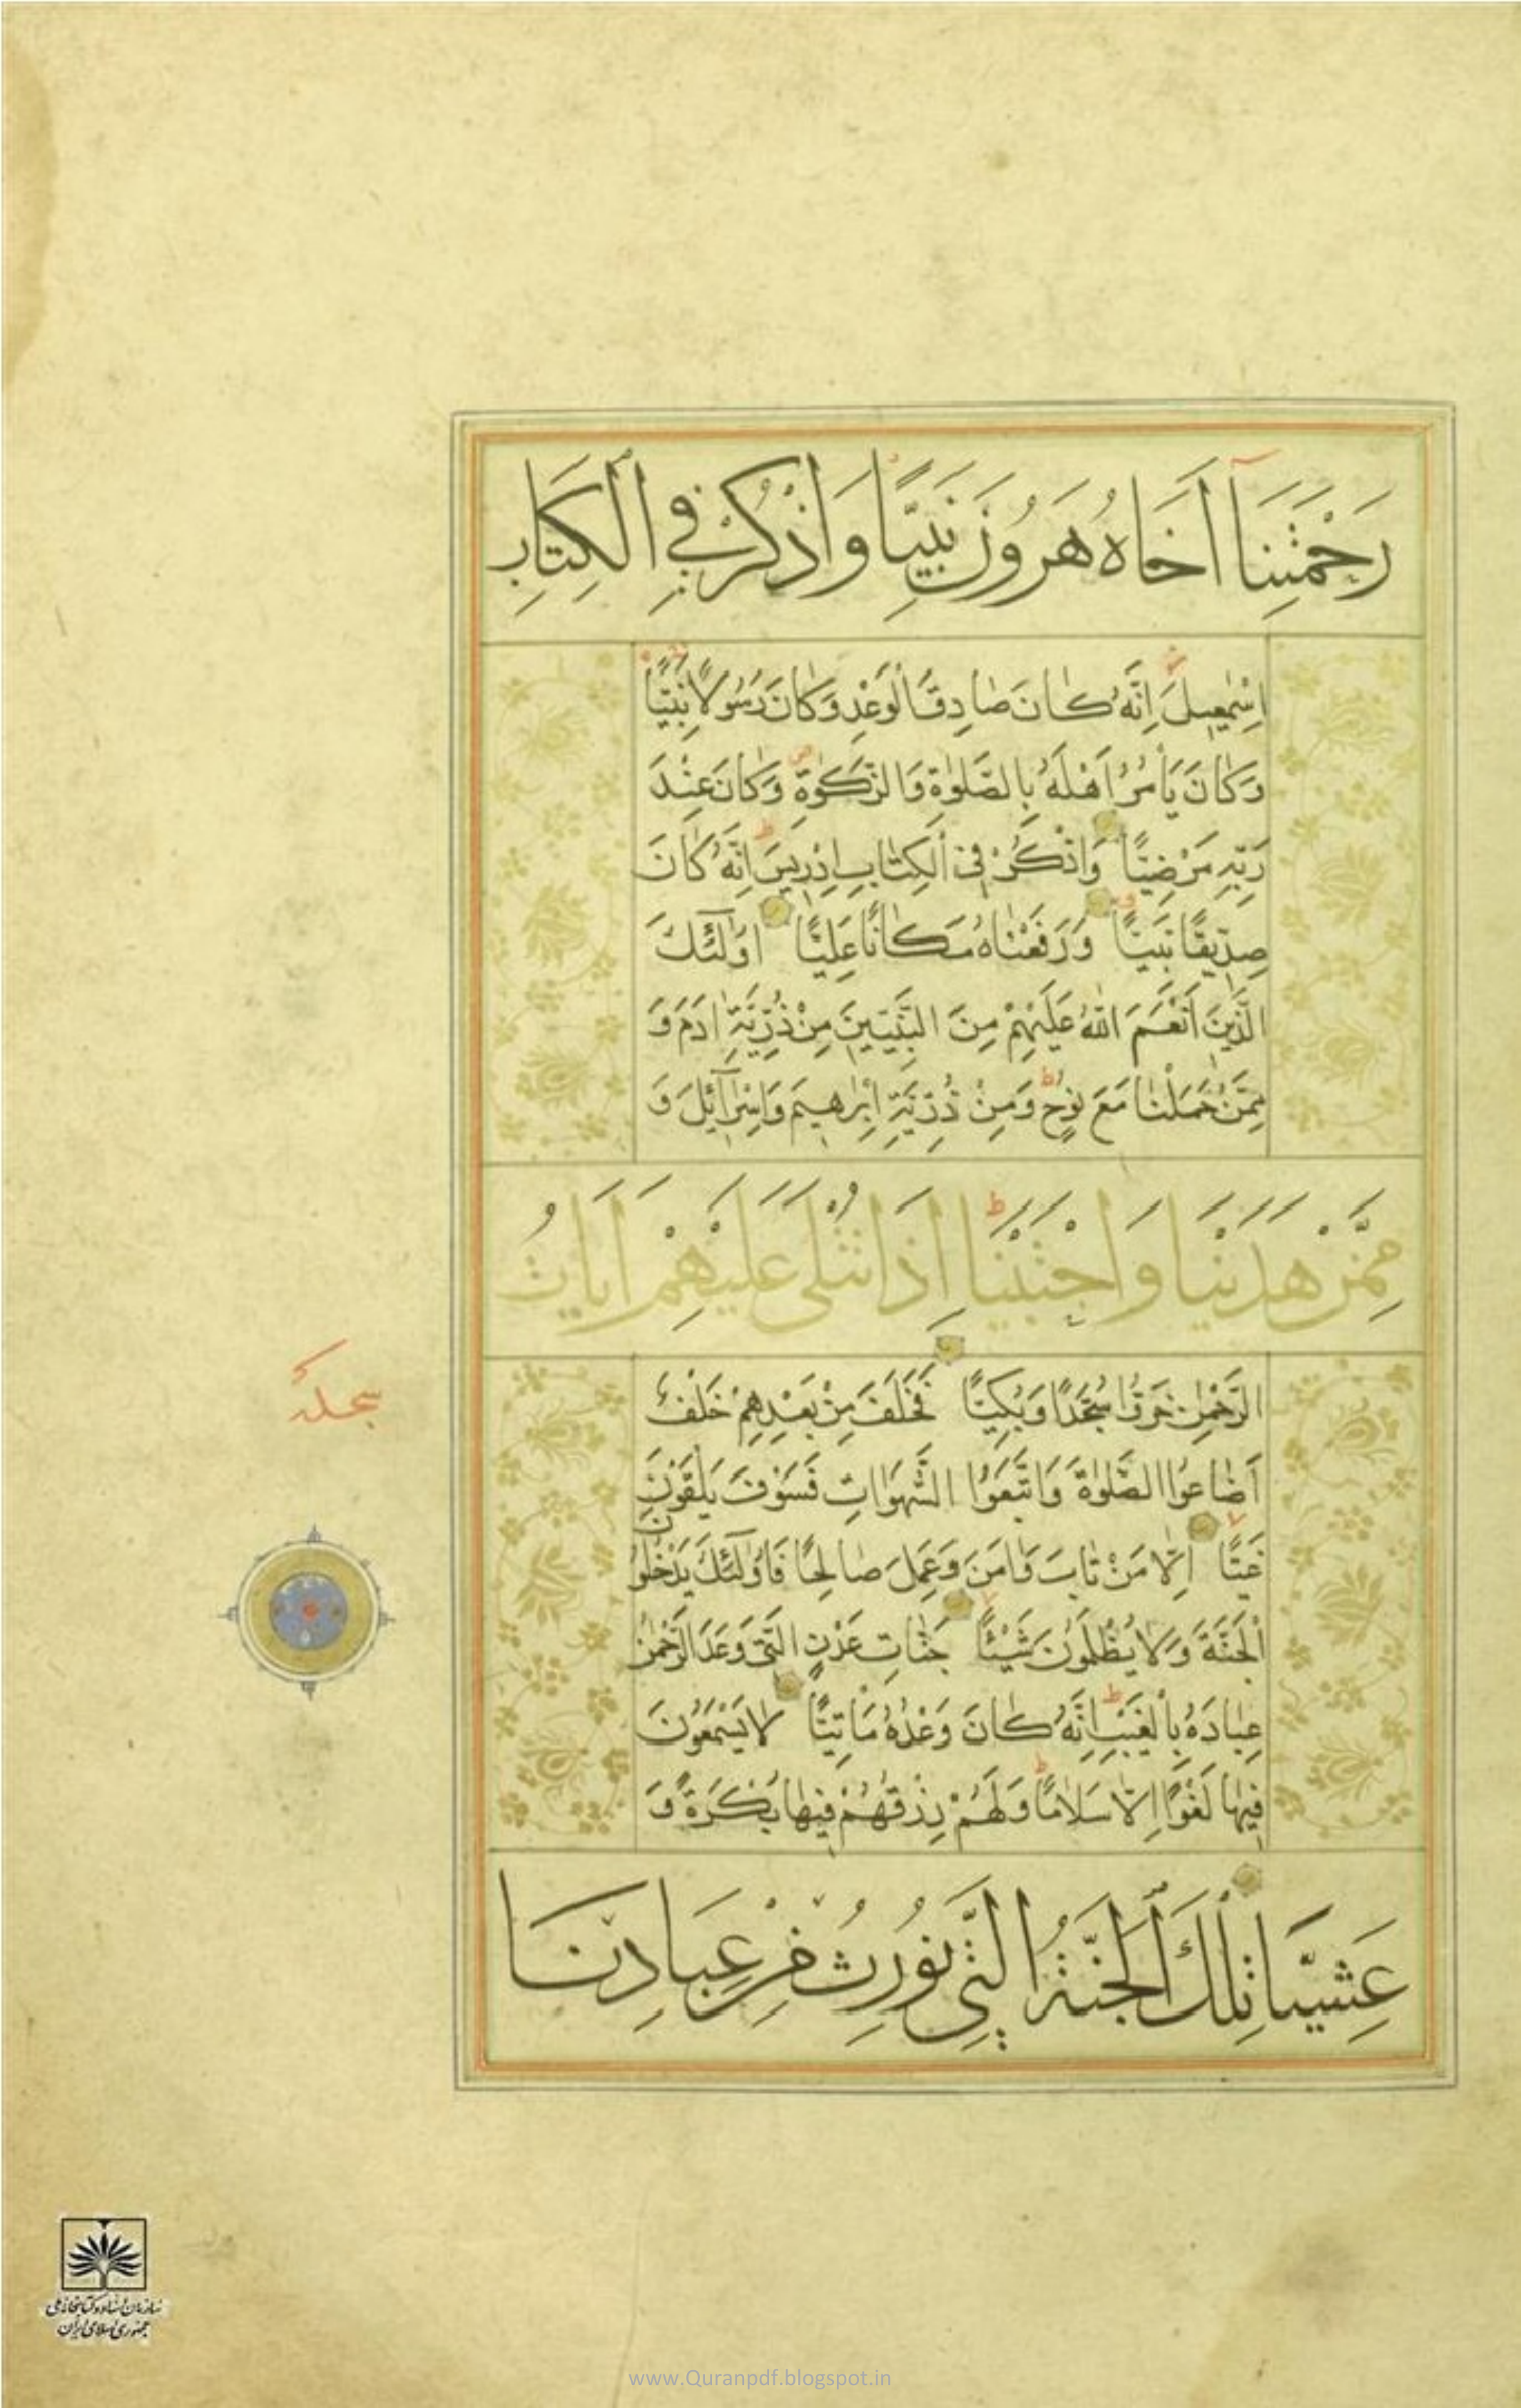 رَحْمَتِنَا أَخَاهُ هَرُونَ نَبِيًّا وَاذْكُرْ فِي الْكِتَابِ
اِسْمٰعِيلَ اِنَّهُ كَانَ صَادِقَ الْوَعْدِ وَكَانَ رَسُولًا نَبِيًّا
وَكَانَ يَأْمُرُ اَهْلَهُ بِالصَّلٰوةِ وَالزَّكٰوةِ وَكَانَ عِنْدَ
رَبِّهِ مَرْضِيًّا وَاذْكُرْ فِي الْكِتَابِ اِدْرِيسَ اِنَّهُ كَانَ
صِدِّيقًا نَبِيًّا وَرَفَعْنَاهُ مَكَانًا عَلِيًّا اُولٰٓئِكَ
الَّذِينَ اَنْعَمَ اللّٰهُ عَلَيْهِمْ مِنَ النَّبِيِّينَ مِنْ ذُرِّيَّةِ اٰدَمَ وَ
مِمَّنْ حَمَلْنَا مَعَ نُوحٍ وَمِنْ ذُرِّيَّةِ اِبْرٰهِيمَ وَاِسْرَآئِلَ وَ
مِمَّنْ هَدَيْنَا وَاجْتَبَيْنَا اِذَا تُتْلٰى عَلَيْهِمْ اٰيَاتُ
الرَّحْمٰنِ خَرُّوا سُجَّدًا وَبُكِيًّا فَخَلَفَ مِنْ بَعْدِهِمْ خَلْفٌ
اَضَاعُوا الصَّلٰوةَ وَاتَّبَعُوا الشَّهَوَاتِ فَسَوْفَ يَلْقَوْنَ
غَيًّا اِلَّا مَنْ تَابَ وَاٰمَنَ وَعَمِلَ صَالِحًا فَاُولٰٓئِكَ يَدْخُلُونَ
الْجَنَّةَ وَلَا يُظْلَمُونَ شَيْئًا جَنَّاتِ عَدْنٍ الَّتِي وَعَدَ الرَّحْمٰنُ
عِبَادَهُ بِالْغَيْبِ اِنَّهُ كَانَ وَعْدُهُ مَأْتِيًّا لَا يَسْمَعُونَ
فِيهَا لَغْوًا اِلَّا سَلَامًا وَلَهُمْ رِزْقُهُمْ فِيهَا بُكْرَةً وَ
عَشِيًّا تِلْكَ الْجَنَّةُ الَّتِي نُورِثُ مِنْ عِبَادِنَا
سجدة
سازمان اسناد و کتابخانه ملی
جمهوری اسلامی ایران
www.Quranpdf.blogspot.in